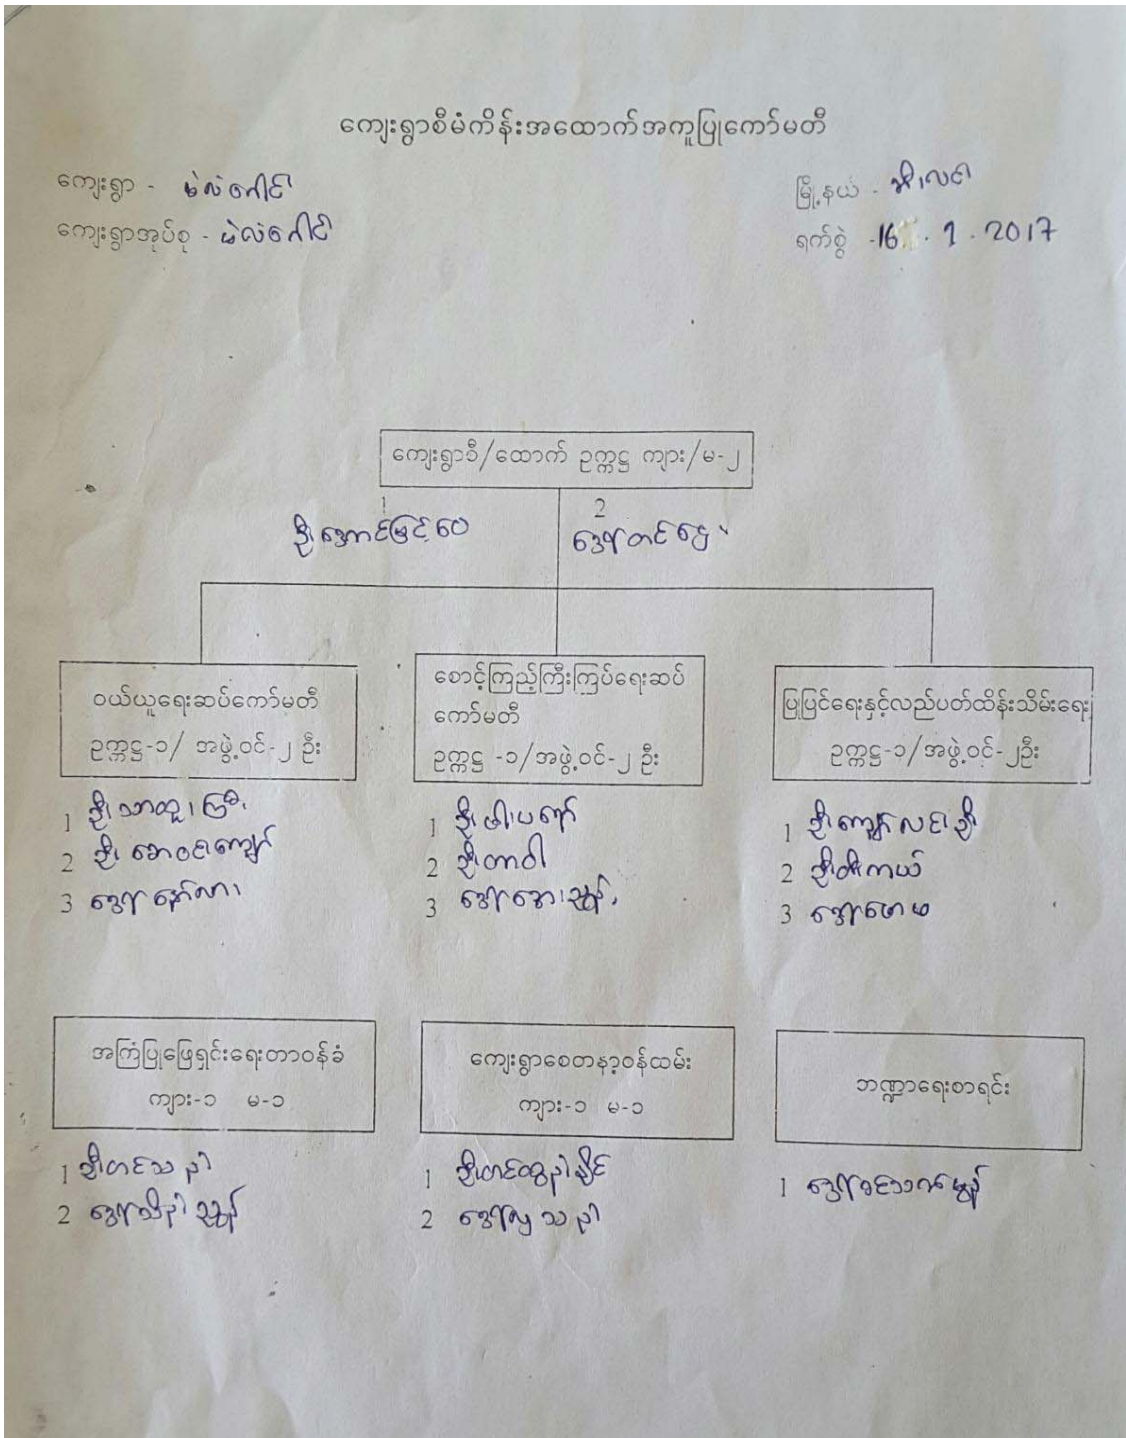 ကျေးရွာစီမံကိန်းအထောက်အကူပြုကော်မတီ
ကျေးရွာ - မဲလဲခေါင်
မြို့နယ် -
ကျေးရွာအုပ်စု - မဲလဲခေါင်
ရက်စွဲ -16 . 9 . 2017
ကျေးရွာစီ/ထောက် ဥက္ကဋ္ဌ ကျား/မ-၂
1 ဦးအောင်မြင့်ဝေ
2 ဒေါ်တင်ဌေး
ဝယ်ယူရေးဆပ်ကော်မတီ
ဥက္ကဋ္ဌ-၁/ အဖွဲ့ဝင်-၂ ဦး
1 ဦး
2 ဦး
3 ဒေါ်နော်လား
စောင့်ကြည့်ကြီးကြပ်ရေးဆပ်
ကော်မတီ
ဥက္ကဋ္ဌ -၁/အဖွဲ့ဝင်-၂ ဦး
1 ဦး
2 ဦးတာဝါ
3 ဒေါ်အေးညွန့်
ပြုပြင်ရေးနှင့်လည်ပတ်ထိန်းသိမ်းရေး
ဥက္ကဋ္ဌ-၁/အဖွဲ့ဝင်-၂ဦး
1 ဦးကျော်လင်းဦး
2 ဦး
3 ဒေါ်
အကြံပြုဖြေရှင်းရေးတာဝန်ခံ
ကျား-၁ မ-၁
1 ဦးတင်သန်း
2 ဒေါ်သိန်းညွန့်
ကျေးရွာစေတနာ့ဝန်ထမ်း
ကျား-၁ မ-၁
1 ဦးတင်ထွန်းနိုင်
2 ဒေါ်လှသန်း
ဘဏ္ဍာရေးစာရင်း
1 ဒေါ်